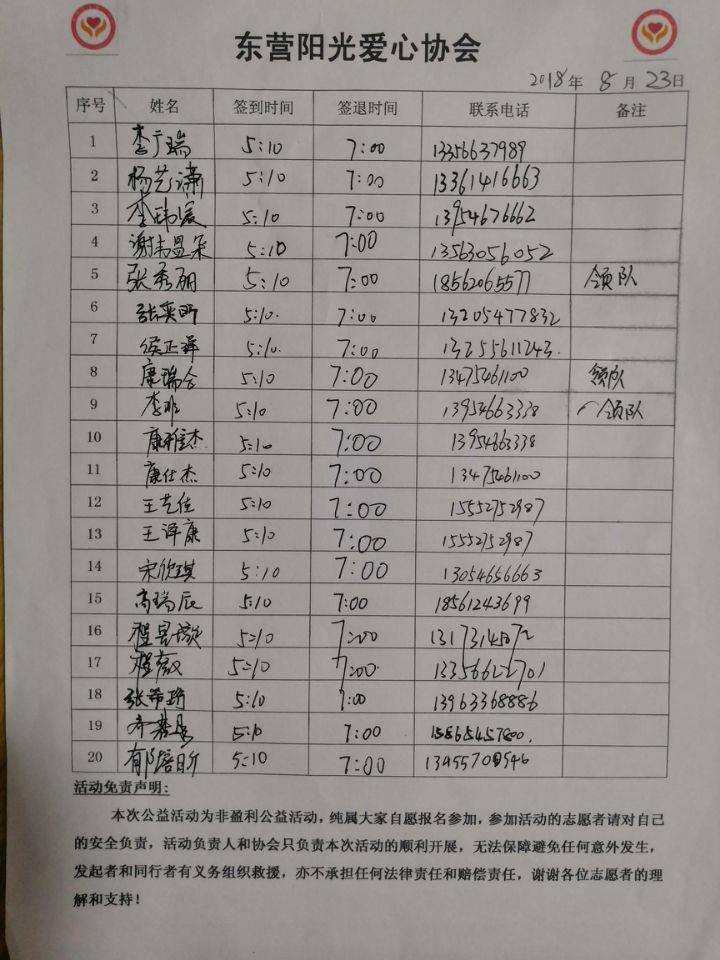 东营阳光爱心协会
2018年 8月23日
序号 姓名 签到时间 签退时间 联系电话 备注
1 李广瑞 5:10 7:00 13356637989
2 杨艺潇 5:10 7:00 13361416663
3 李玮宸 5:10 7:00 13954676662
4 5:10 7:00 13563056052
5 张秀丽 5:10 7:00 18562065577 领队
6 张奕昕 5:10. 7:00 13205477832
7 侯正祥 5:10. 7:00 13255611243.
8 康瑞合 5:10 7:00 13475461100 领队
9 李昕 5:10 7:00 13954663338 领队
10 5:10 7:00 13954663338
11 康仕杰 5:10 7:00 13475461100
12 王艺佳 5:10 7:00 15552752987
13 王泽康 5:10 7:00 15552752987
14 宋欣琪 5:10 7:00 13054656663
15 高瑞辰 5:10 7:00 18561243699
16 5:10 7:00
17 5:10 7:00 13356622701
18 张希珩 5:10 7:00 13963368886
19 5:10 7:00 15865457800.
20 5:10 7:00
活动免责声明:
本次公益活动为非盈利公益活动，纯属大家自愿报名参加，参加活动的志愿者请对自己
的安全负责，活动负责人和协会只负责本次活动的顺利开展，无法保障避免任何意外发生，
发起者和同行者有义务组织救援，亦不承担任何法律责任和赔偿责任，谢谢各位志愿者的理
解和支持！